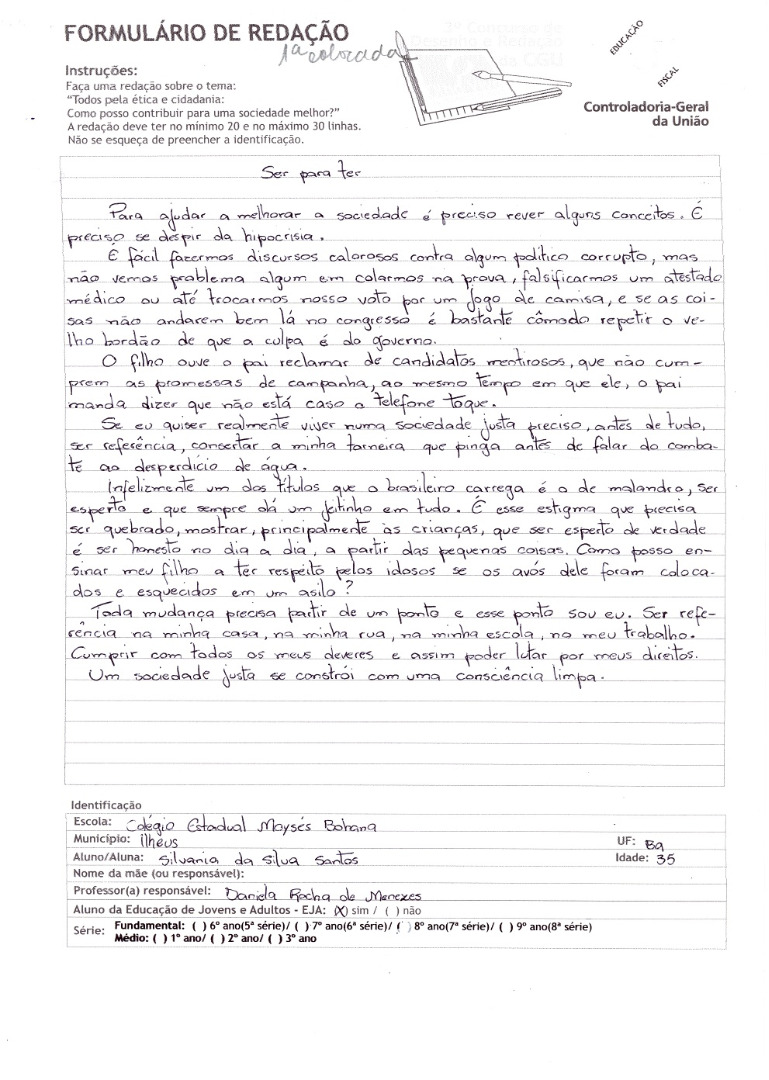 FORMULÁRIO DE REDAÇÃO
1ª colocada
3º Concurso de
Desenho e Redação
da CGU
EDUCAÇÃO
FISCAL
Controladoria-Geral
da União
Instruções:
Faça uma redação sobre o tema:
“Todos pela ética e cidadania:
Como posso contribuir para uma sociedade melhor?”
A redação deve ter no mínimo 20 e no máximo 30 linhas.
Não se esqueça de preencher a identificação.
Ser para ter
Para ajudar a melhorar a sociedade é preciso rever alguns conceitos. É
preciso se despir da hipocrisia.
É fácil fazermos discursos calorosos contra algum político corrupto, mas
não vemos problema algum em colarmos na prova, falsificarmos um atestado
médico ou até trocarmos nosso voto por um jogo de camisa, e se as coi-
sas não andarem bem lá no congresso é bastante cômodo repetir o ve-
lho bordão de que a culpa é do governo.
O filho ouve o pai reclamar de candidatos mentirosos, que não cum-
prem as promessas de campanha, ao mesmo tempo em que ele, o pai
manda dizer que não está caso o telefone toque.
Se eu quiser realmente viver numa sociedade justa preciso, antes de tudo,
ser referência, consertar a minha torneira que pinga antes de falar do comba-
te ao desperdício de água.
Infelizmente um dos títulos que o brasileiro carrega é o de malandro, ser
esperto e que sempre dá um jeitinho em tudo. É esse estigma que precisa
ser quebrado, mostrar, principalmente às crianças, que ser esperto de verdade
é ser honesto no dia a dia, a partir das pequenas coisas. Como posso en-
sinar meu filho a ter respeito pelos idosos se os avós dele foram coloca-
dos e esquecidos em um asilo?
Toda mudança precisa partir de um ponto e esse ponto sou eu. Ser refe-
rência na minha casa, na minha rua, na minha escola, no meu trabalho.
Cumprir com todos os meus deveres e assim poder lutar por meus direitos.
Um sociedade justa se constrói com uma consciência limpa.
Identificação
Escola: Colégio Estadual Moysés Bohana
Município: ilhéus UF: Ba
Aluno/Aluna: Silvania da Silva Santos Idade: 35
Nome da mãe (ou responsável):
Professor(a) responsável: Daniela Rocha de Menezes
Aluno da Educação de Jovens e Adultos - EJA: (X) sim / ( ) não
Série: Fundamental: ( ) 6º ano(5ª série)/ ( ) 7º ano(6ª série)/ ( ) 8º ano(7ª série)/ ( ) 9º ano(8ª série)
Médio: ( ) 1º ano/ ( ) 2º ano/ ( ) 3º ano